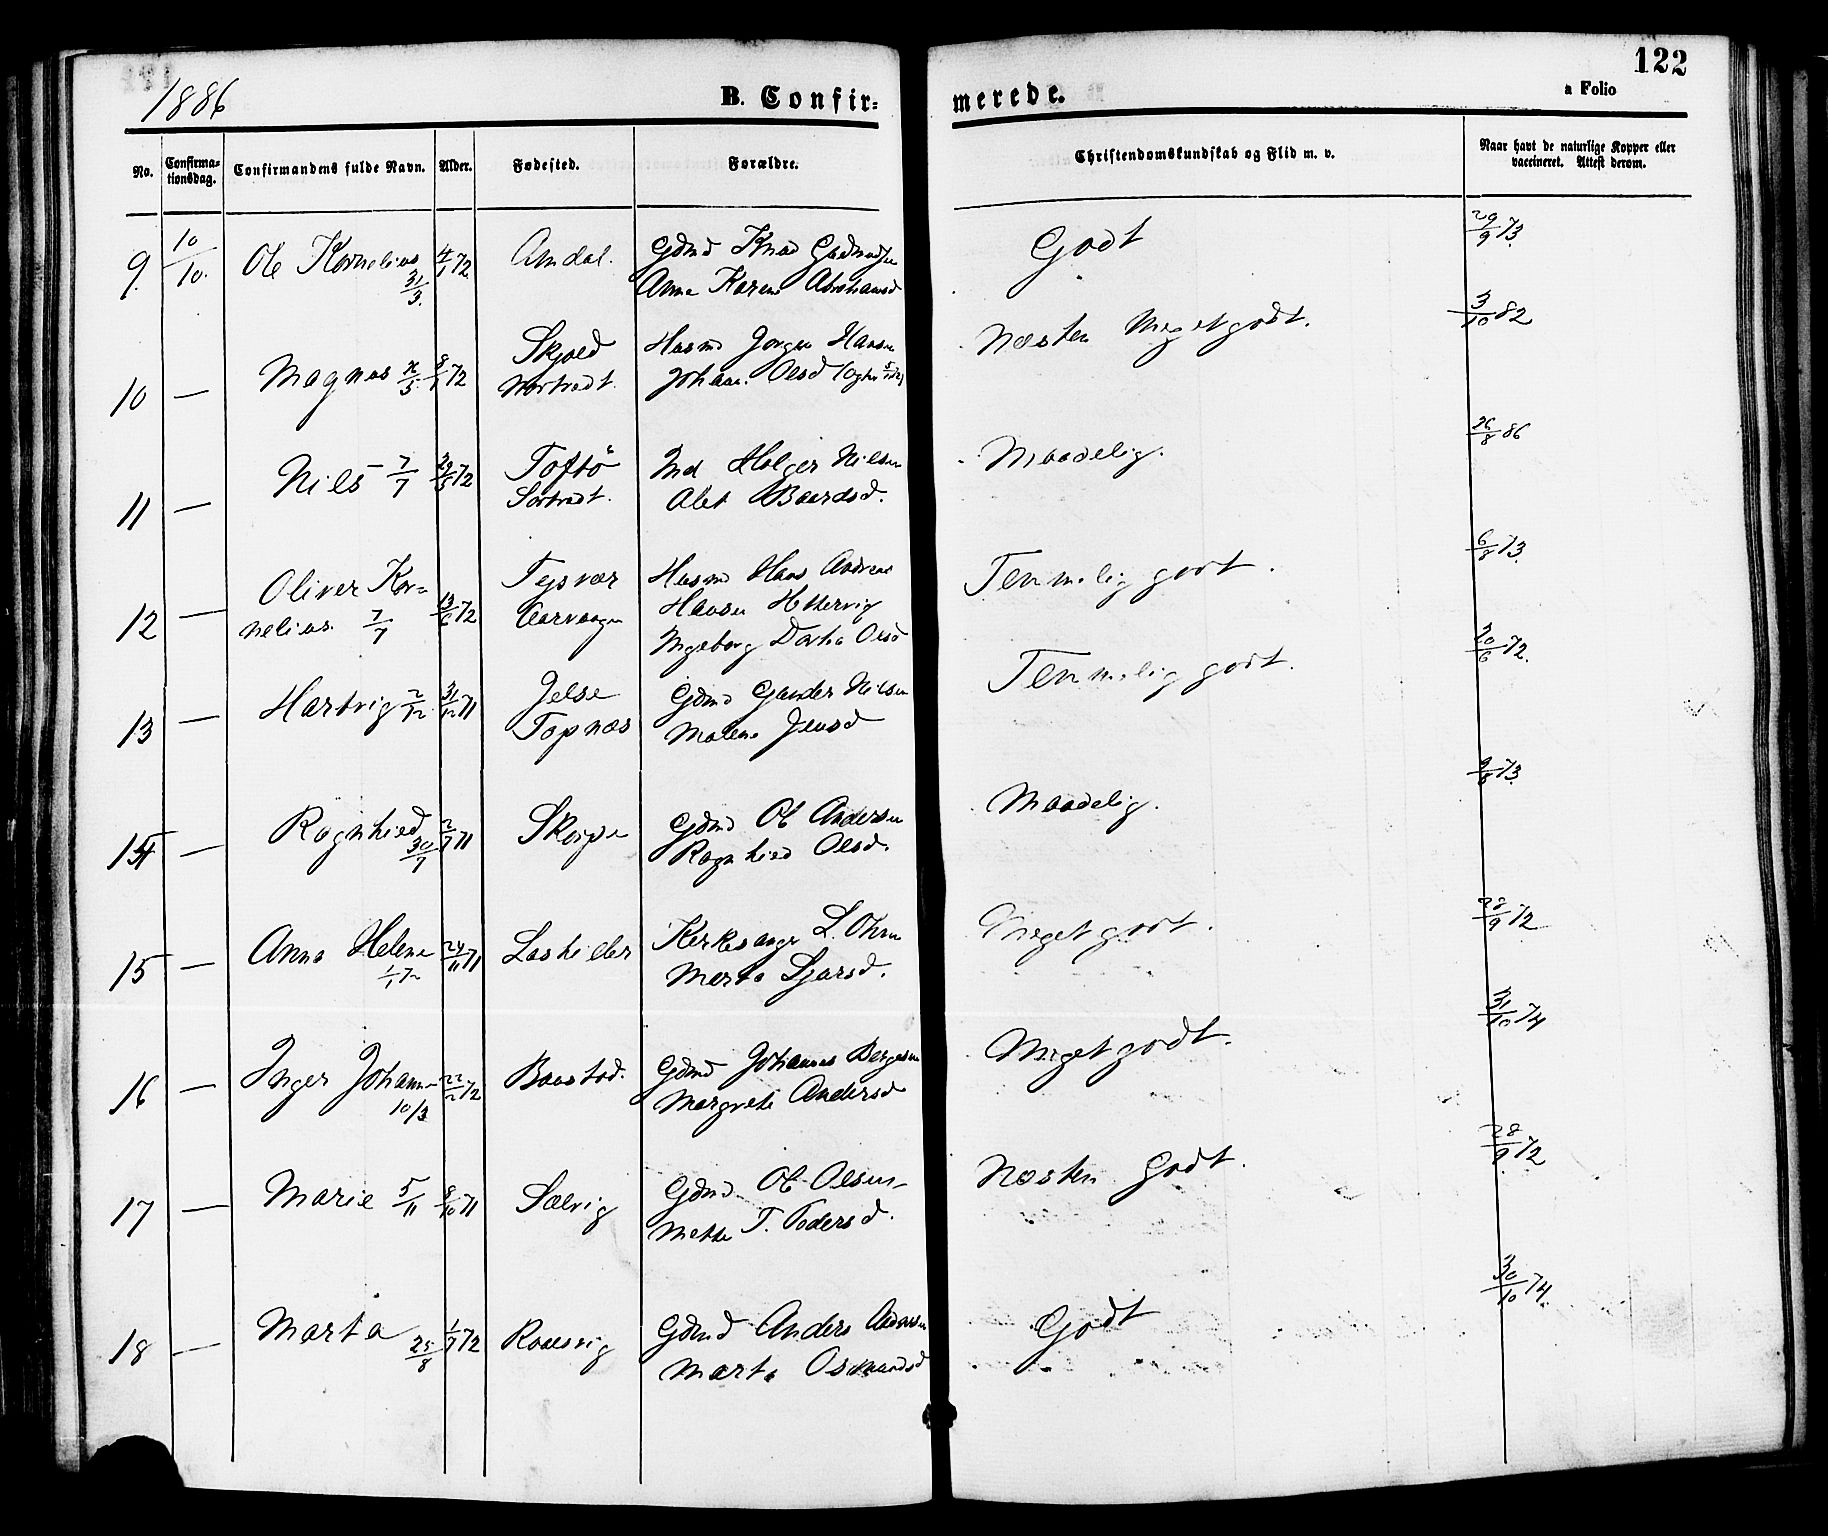 1886
B. Confir-
merede.
122
a Folio
No.
Confirma-
tionsdag.
Confirmandens fulde Navn.
Alder.
Fødested.
Forældre.
Christendomskundskab og Flid m. v.
Naar havt de naturlige Kopper eller
vaccineret. Attest derom.
9. 10/10. Ole Kornelius 4/1 72 Amdal. Gdmd Knud
31/3. Anna Karine Abrahamsd
Godt
29/9 73
10 — Magnus 8/1 72 Skjold Husmd Jørgen Hansen
Johane Olsd
Næsten Meget godt.
3/10 82
11 — Nils 7/7 72 Toftø Holger Nilsen
Alet Baardsd.
Maadelig.
26/8 86
12 — Oliver Kor- 13/6 72 Tysvær Husmd Hans Andreas
nelius. 7/7 Hansen Hettervig
Ingeborg Dorthea Olsd
Temmelig godt.
6/8 73.
13 — Hartvig 2/12 31/12 71 Jelse Gdmd Gunder Nilsen
Topnæs Malene Jensd
Temmelig godt.
20/6 72.
14 — Ragnhild 2/7 71 Gdmd Ole Andersen
30/7 Ragnhild Olsd.
Maadelig.
9/8 73
15 — Anna Helene 24/11 71 Kirkesanger L.
1/1 72 Marta
Meget godt.
28/9 72
16 — Inger Johanne 22/2 72 Baustad. Gdmd Johannes Bergesen
10/3 Margrete Andersd
Meget godt.
31/10 74
17 — Marie 5/11 8/10 71 Sælvig Gdmd Ole Olsen
Mette T. Pedersd.
Næsten Godt.
28/9 72
18 — Marta 1/7 72 Gdmd Anders Andersen
25/8 Marta Osmundsd
Godt
30/10 74.